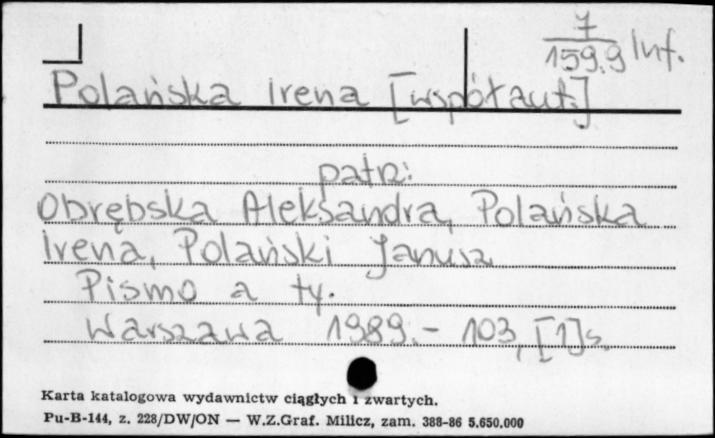 7
159.9 Inf.
Polańska Irena [współaut.]
patrz:
Obrębska Aleksandra, Polańska
Irena, Polański Janusz
Pismo a ty.
Warszawa 1989.- 103, [1] s.
Karta katalogowa wydawnictw ciągłych i zwartych.
Pu-B-144, z. 228/DW/ON — W.Z.Graf. Milicz, zam. 388-86 5.650.000